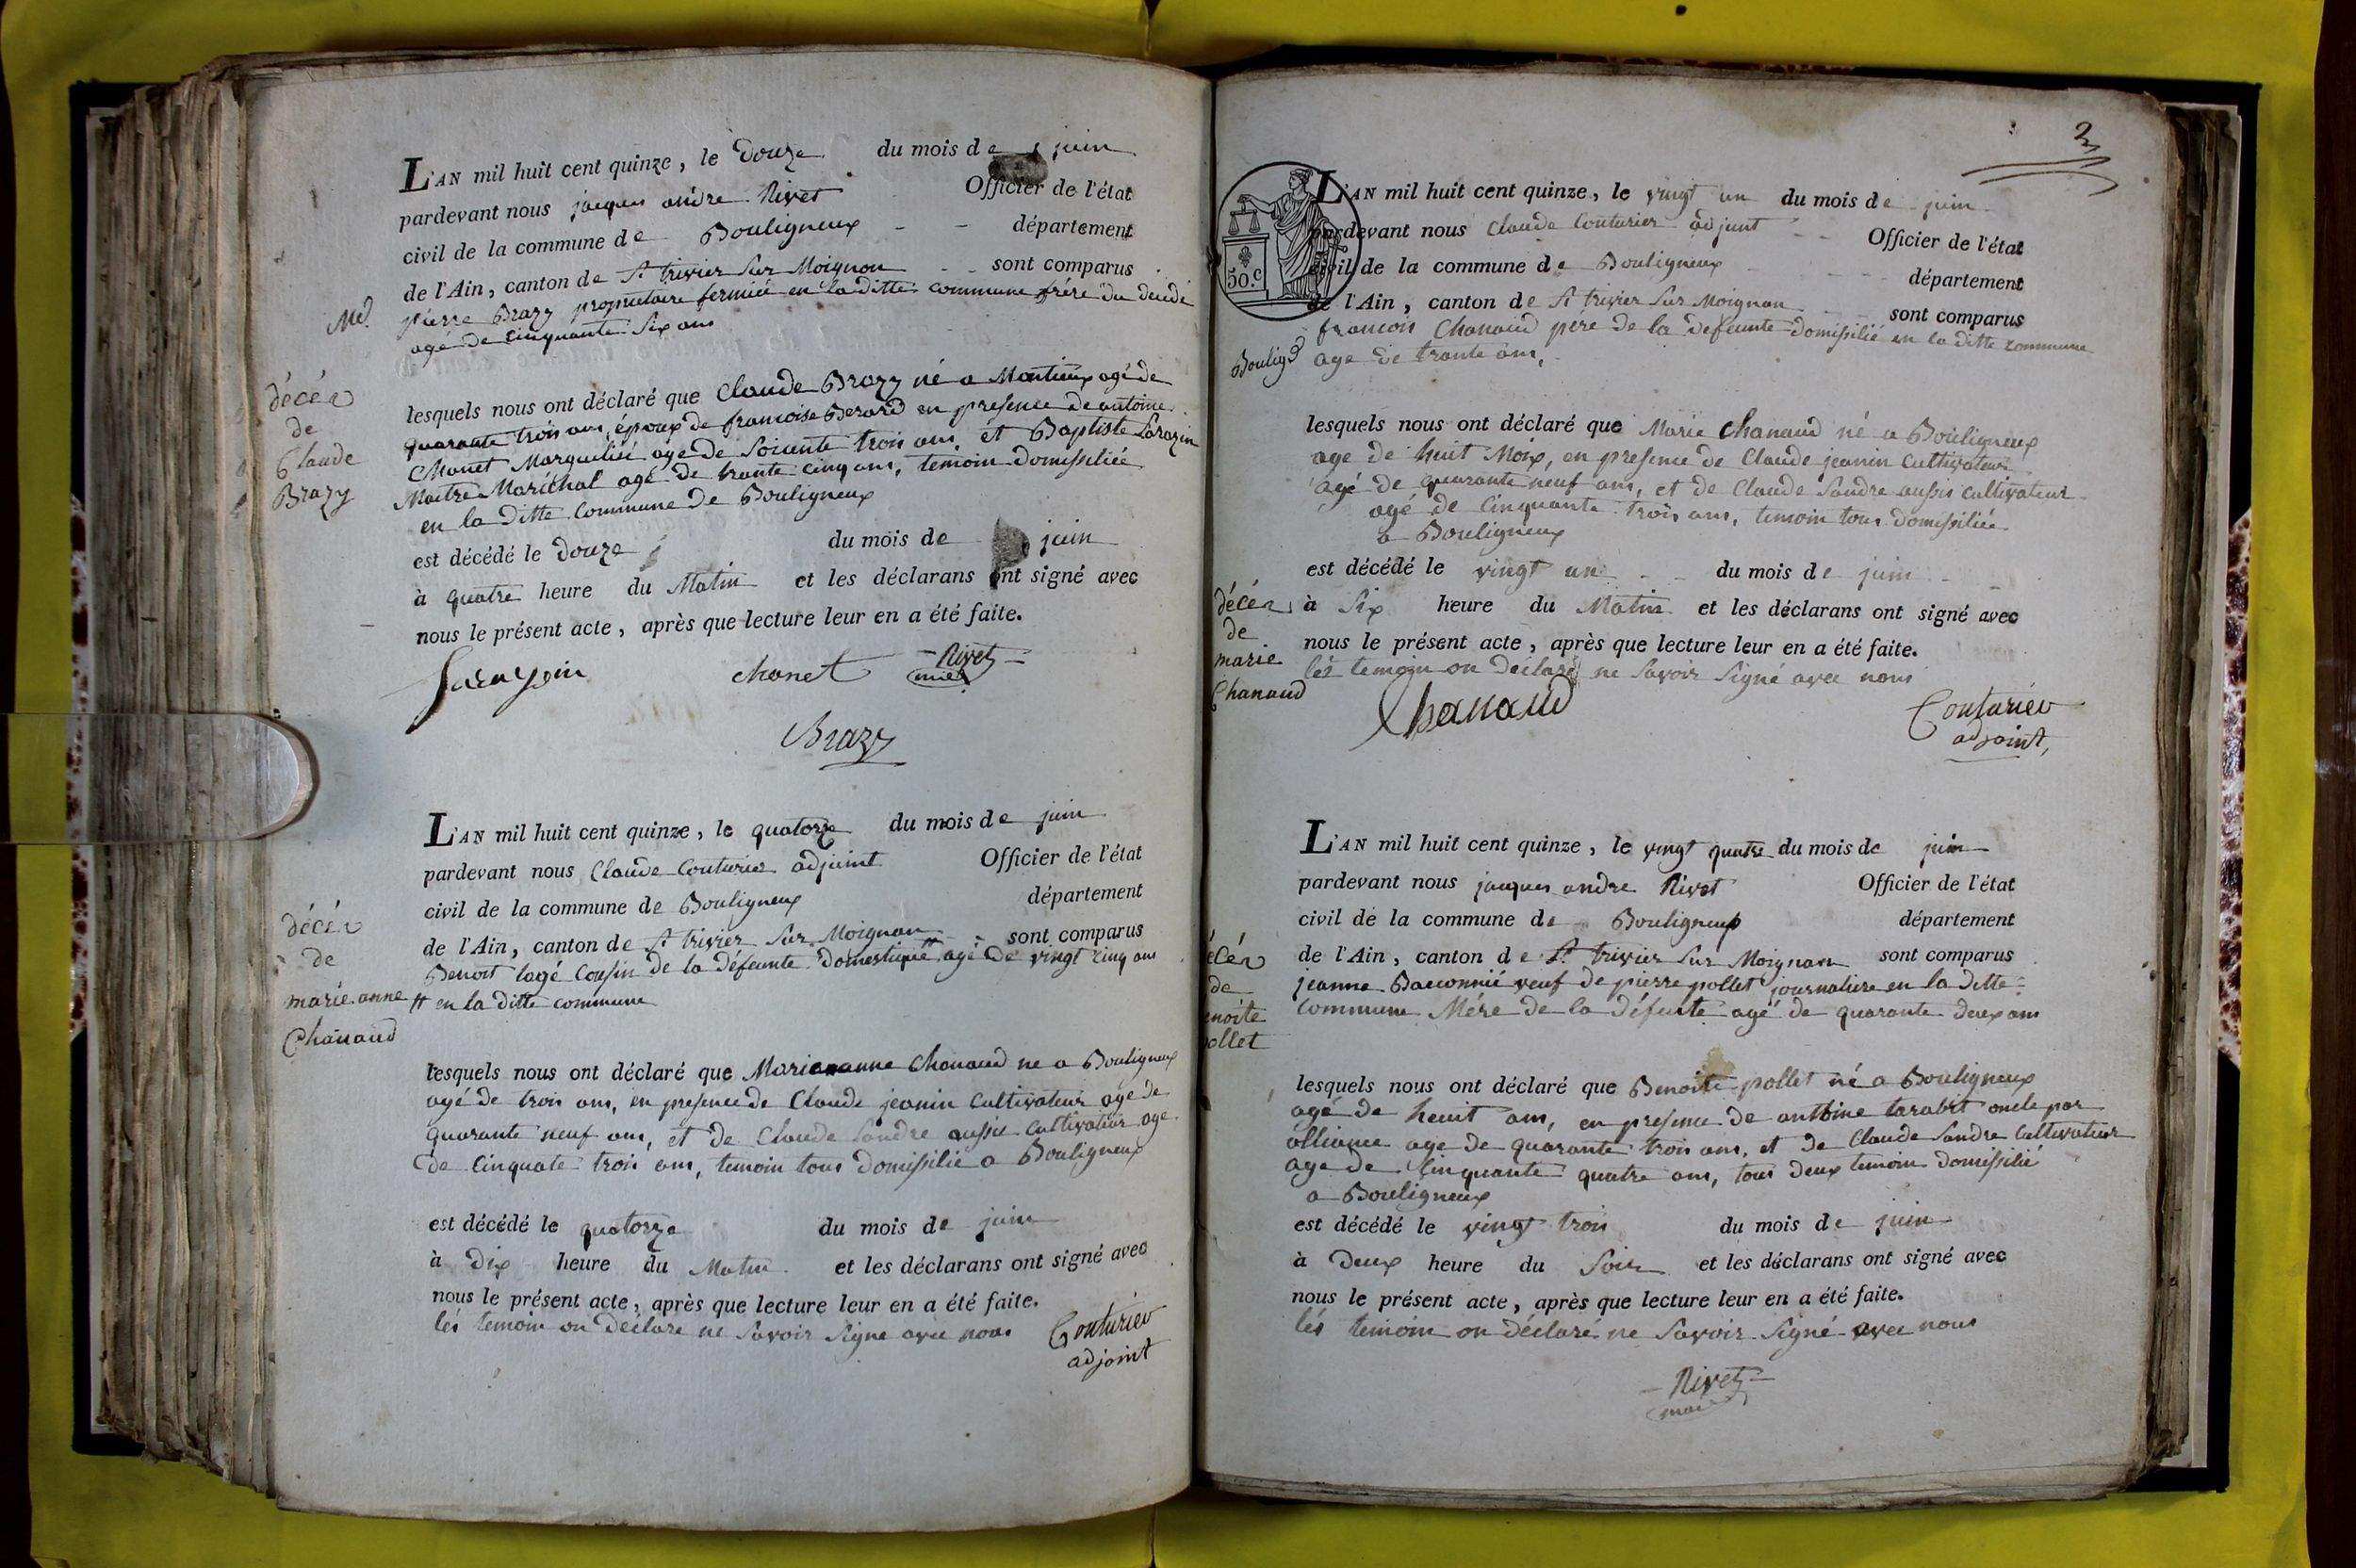 L'AN mil huit cent quinze, le douze du mois de juin
pardevant nous jacques andre Rivet Officier de l'état
civil de la commune de Bouligneux département
de l'Ain, canton de St trivier sur Moignon sont comparus
Md. pierre Brazy proprietaire fermié en la ditte commune frére du
agé de cinquante six ans
décés
de
Claude
Brazy
lesquels nous ont déclaré que Claude Brazy né a Montieux agé de
quarante trois ans, époux de francoise Berard en presence de antoine
Chanet Marguelisé age de soixante trois ans et Baptiste Sarazin
Maitre Maréchal agé de trante cinq ans, temoin domissiliée
en la ditte commune de Bouligneux
est décédé le douze du mois de juin
à quatre heure du Matin et les déclarans ont signé avec
nous le présent acte, après que lecture leur en a été faite.
Sarazin chanet Rivet
Brazy
L'AN mil huit cent quinze, le quatorze du mois de juin
pardevant nous Claude Couturier adjoint Officier de l'état
civil de la commune de Bouligneux département
de l'Ain, canton de St trivier sur Moignon sont comparus
Benoit lagé cousin de la défeunte domestique # agé de vingt cinq ans
# en la ditte commune
décés
de
marie anne
Chanaud
lesquels nous ont déclaré que Marie anne Chanaud ne a Bouligneux
agé de trois ans, en presence de Claude jeanin cultivateur agé de
quarante neuf ans, et de Claude Sandre aussi cultivateur age
de cinquate trois ans, temoin tous domissilié a Bouligneux
est décédé le quatorze du mois de juin
à dix heure du Matin et les déclarans ont signé avec
nous le présent acte, après que lecture leur en a été faite.
lés temoin on déclare ne savoir signe avec nous Couturier
adjoint
2
50.c
L'AN mil huit cent quinze, le vingt un du mois de juin
pardevant nous Claude Couturier adjoint Officier de l'état
civil de la commune de Bouligneux département
de l'Ain, canton de St trivier sur Moignon sont comparus
francois Chanaud pére de la defeunte domissilié en la ditte commune
age de trante ans,
lesquels nous ont déclaré que Marie Chanaud né a Bouligneux
age de huit Moix, en presence de Claude jeanin cultivateur
agé de quarante neuf ans, et de Claude Sandre aussi cultivateur
agé de cinquante trois ans, temoin tous domissiliée
a Bouligneux
est décédé le vingt un du mois de juin
à six heure du Matin et les déclarans ont signé avec
nous le présent acte, après que lecture leur en a été faite.
lés temoin on déclaré ne savoir signé avec nous
décés
de
marie
Chanaud
Chanaud Couturier
adjoint,
L'AN mil huit cent quinze, le vingt quatre du mois de juin
pardevant nous jacques andre Rivet Officier de l'état
civil de la commune de Bouligneux département
de l'Ain, canton de St trivier sur Moignon sont comparus
jeanne Baconnié veuf de pierre pollet journaliere en la ditte
commune Mére de la défeute agé de quarante deux ans
lesquels nous ont déclaré que Benoite pollet né a Bouligneux
agé de heuit ans, en presence de anthoine tarabit oncle par
alliance age de quarante trois ans, et de Claude Sandre cultivateur
age de cinquante quatre ans, tous deux temoin domissilié
a Bouligneux
est décédé le vingt trois du mois de juin
à deux heure du soir et les déclarans ont signé avec
nous le présent acte, après que lecture leur en a été faite.
lés temoin on déclaré ne savoir signé avec nous
Rivet